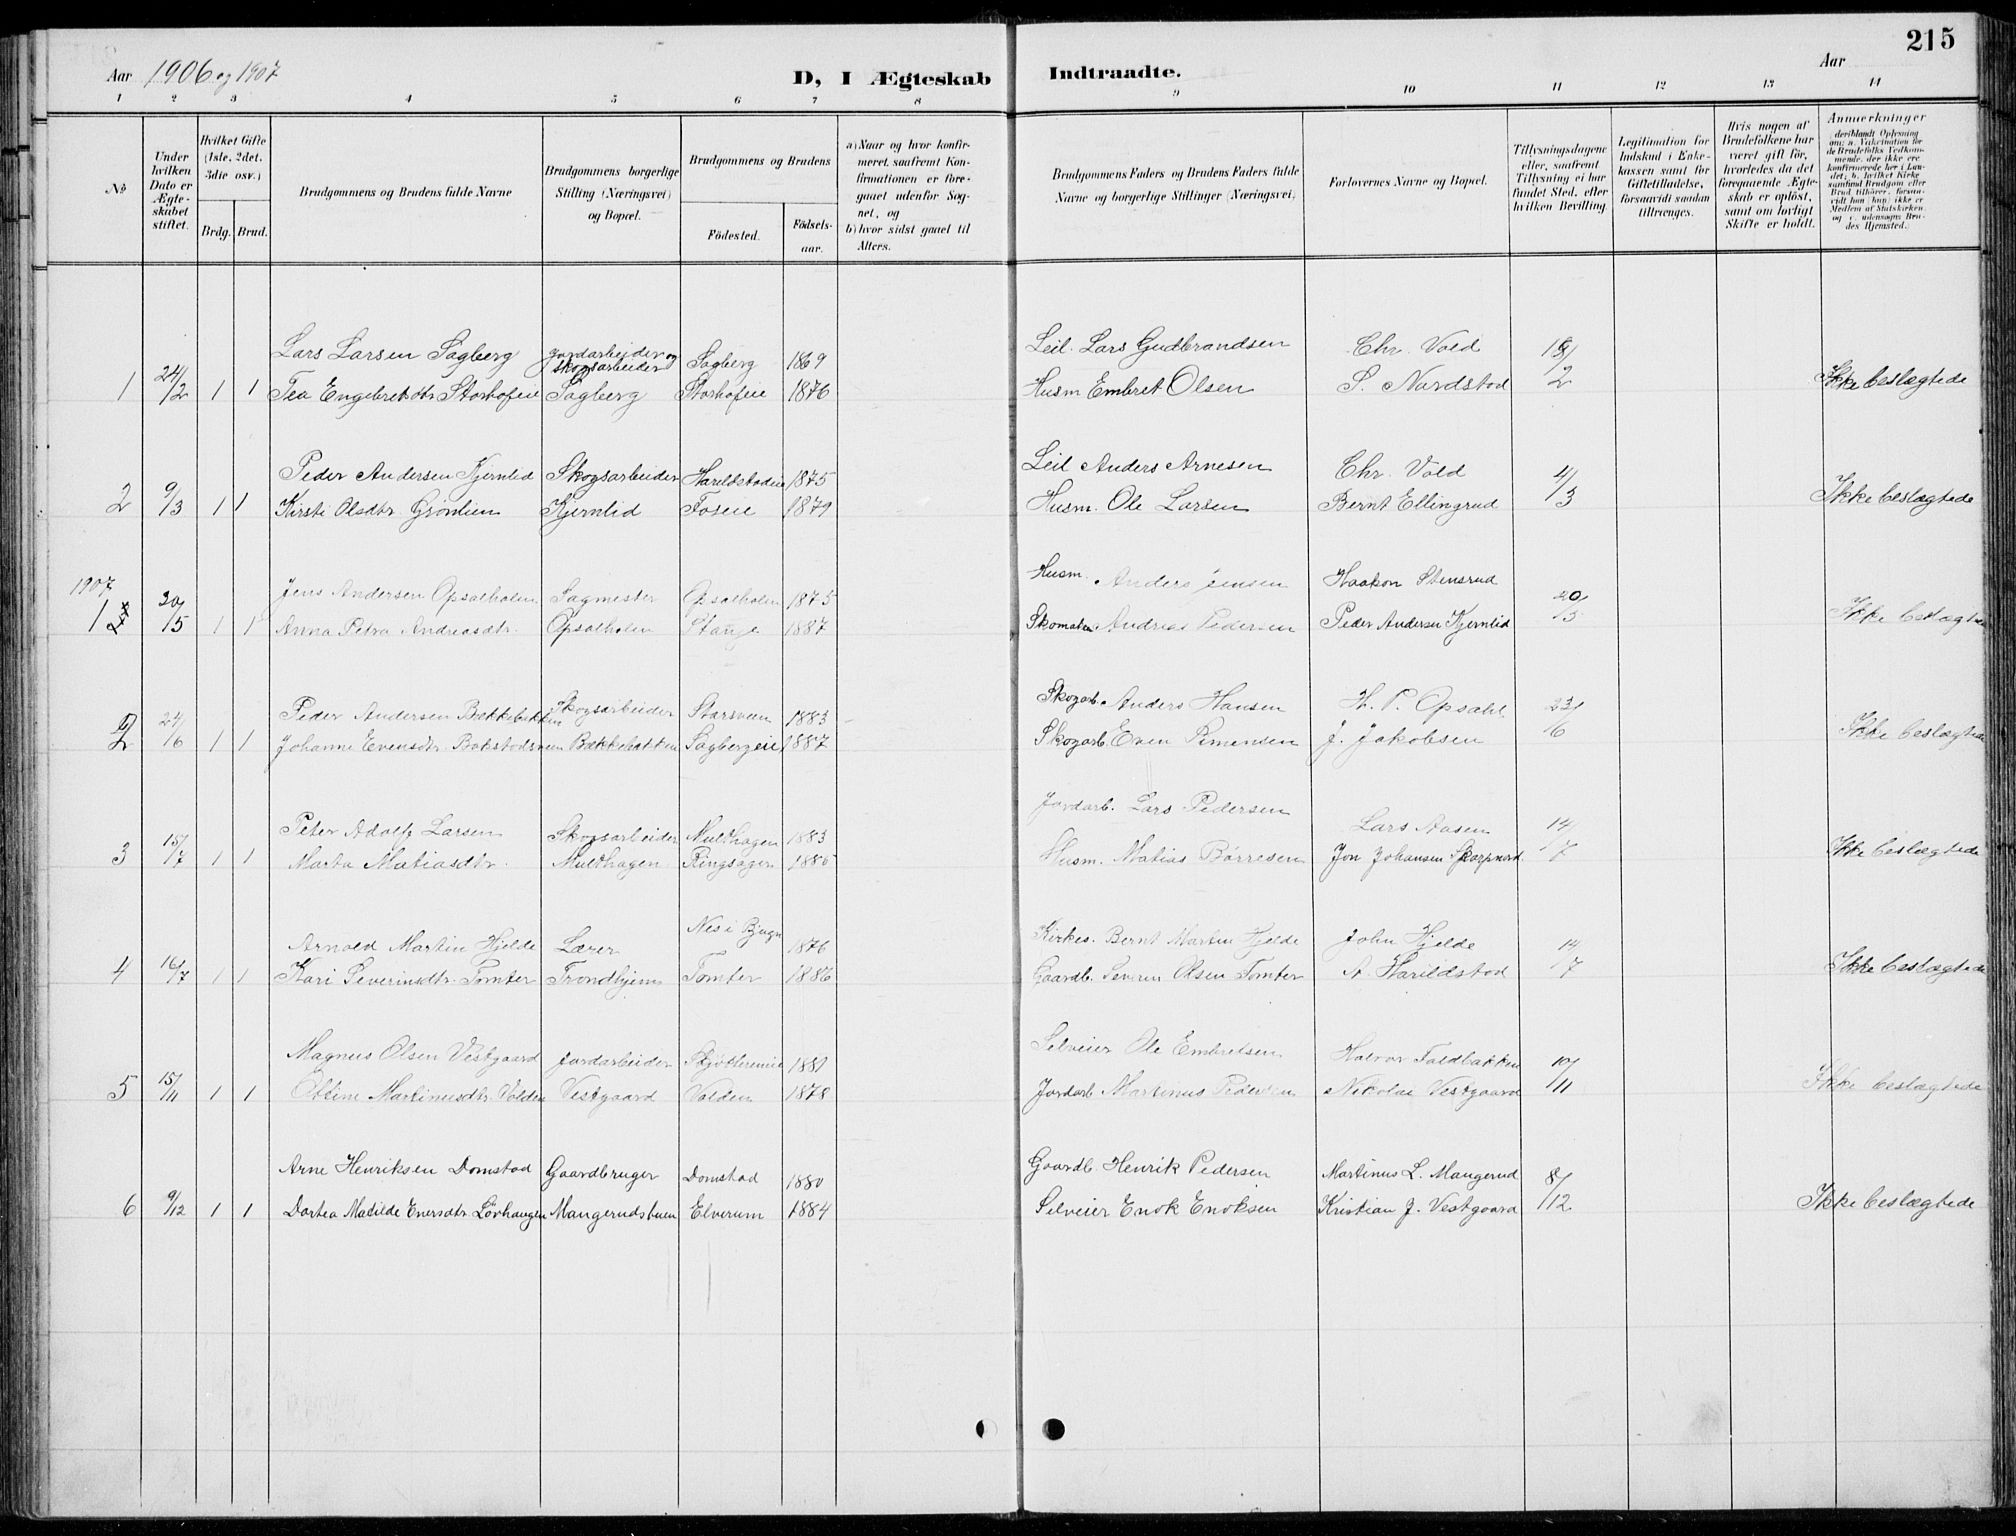 215
Aar 1906 og 1907
D, I Ægteskab Indtraadte.
Aar
1 2 3 4 5 6 7 8 9 10 11 12 13 14
No
Under hvilken Dato er Ægteskabet stiftet.
Hvilket Gifte (1ste, 2det, 3die osv.)
Brdg. Brud.
Brudgommens og Brudens fulde Navne
Brudgommens borgerlige Stilling (Næringsvei) og Bopæl.
Brudgommens og Brudens
Fødested. Fødselsaar.
a) Naar og hvor konfirmeret, saafremt Konfirmationen er foregaaet udenfor Sognet, og
b) hvor sidst gaaet til Alters.
Brudgommens Faders og Brudens Faders fulde Navne og borgerlige Stillinger (Næringsvei)
Forlovernes Navne og Bopæl.
Tillysningsdagene eller, saafremt Tillysning ei har fundet Sted, efter hvilken Bevilling.
Legitimation for Indskud i Enkekassen samt for Giftetilladelse, forsaavidt saadan tiltrænges.
Hvis nogen af Brudefolkene har været gift før, hvorledes da det foregaaende Ægteskab er opløst, samt om lovligt Skifte er holdt.
Anmerkninger
Lars Larsen Sagberg jordarbeider og skogsarbeider Sagberg 1869 Leil. Lars Gudbrandsen Chr. Vold
1 24/2 1 1 Tea Engebretsdtr Storhofeie Sagberg Storhofeie 1876 Husm Embret Olsen S. Nordstad /2 Ikke beslægtede
Peder Andersen Kjernlid Skogsarbeider Harildstadeie 1875 Leil Anders Arnesen Chr. Vold
2 9/3 1 1 Kirsti Olsdtr Grønlien Kjernlid Foseie 1879 Husm. Ole Larsen Bernt Ellingrud 4/3 Ikke beslægtede
1907
Jens Andersen Opsalholen Sagmester Opsalholen 1875 Husm. Anders Jensen Haakon Stensrud
1 20/5 1 1 Anna Petra Andreasdtr. Opsalholen Stange 1887 Skomaker Andreas Pedersen Peder Andersen Kjernlid 20/5 Ikke beslægtede
Peder Andersen Bækkebakken Skogsarbeider Storsveen 1883 Skogarb. Anders Hansen H. P. Opsahl
2 24/6 1 1 Johanne Evensdtr. Bækkebakken Sagbergeie 1887 Skogarb. Even J. Jakobsen 23/6 Ikke beslægtede
Peter Adolf Larsen Skogsarbeider Multhagen 1883 Jordarb. Lars Pedersen Lars Aasen
3 15/7 1 1 Marta Matiasdtr. Multhagen Ringsager 1886 Husm. Matias Børresen Jon Johansen 14/7 Ikke beslægtede
Arnold Martin Hjelde Lærer Nes i Bjugn 1876 Kirkes. Bernt Martin Hjelde John Hjelde
4 16/7 1 1 Kari Severinsdtr. Tomter Trondhjem Tomter 1886 Gaardb. Severin Olsen Tomter A. Harildstad 14/7 Ikke beslægtede
Magnus Olsen Vestgaard Jordarbeider 1881 Selveier Ole Embretsen Halvor Foldbakken
5 15/11 1 1 Ottine Martinusdtr. Volden Vestgaard Volden 1878 Jordarb Martinus Pedersen Nikolai Vestgaard 10/11 Ikke beslægtede
Arne Henriksen Domstad Gaardbruger Domstad 1880 Gaardb. Henrik Pedersen Martinus L. Mangerud
6 9/12 1 1 Dortea Matilde Enersdtr. Løvhaugen Mangerudstuen Elverum 1884 Selveier Enok Enoksen Kristian J. Vestgaard 8/12 Ikke beslægtede